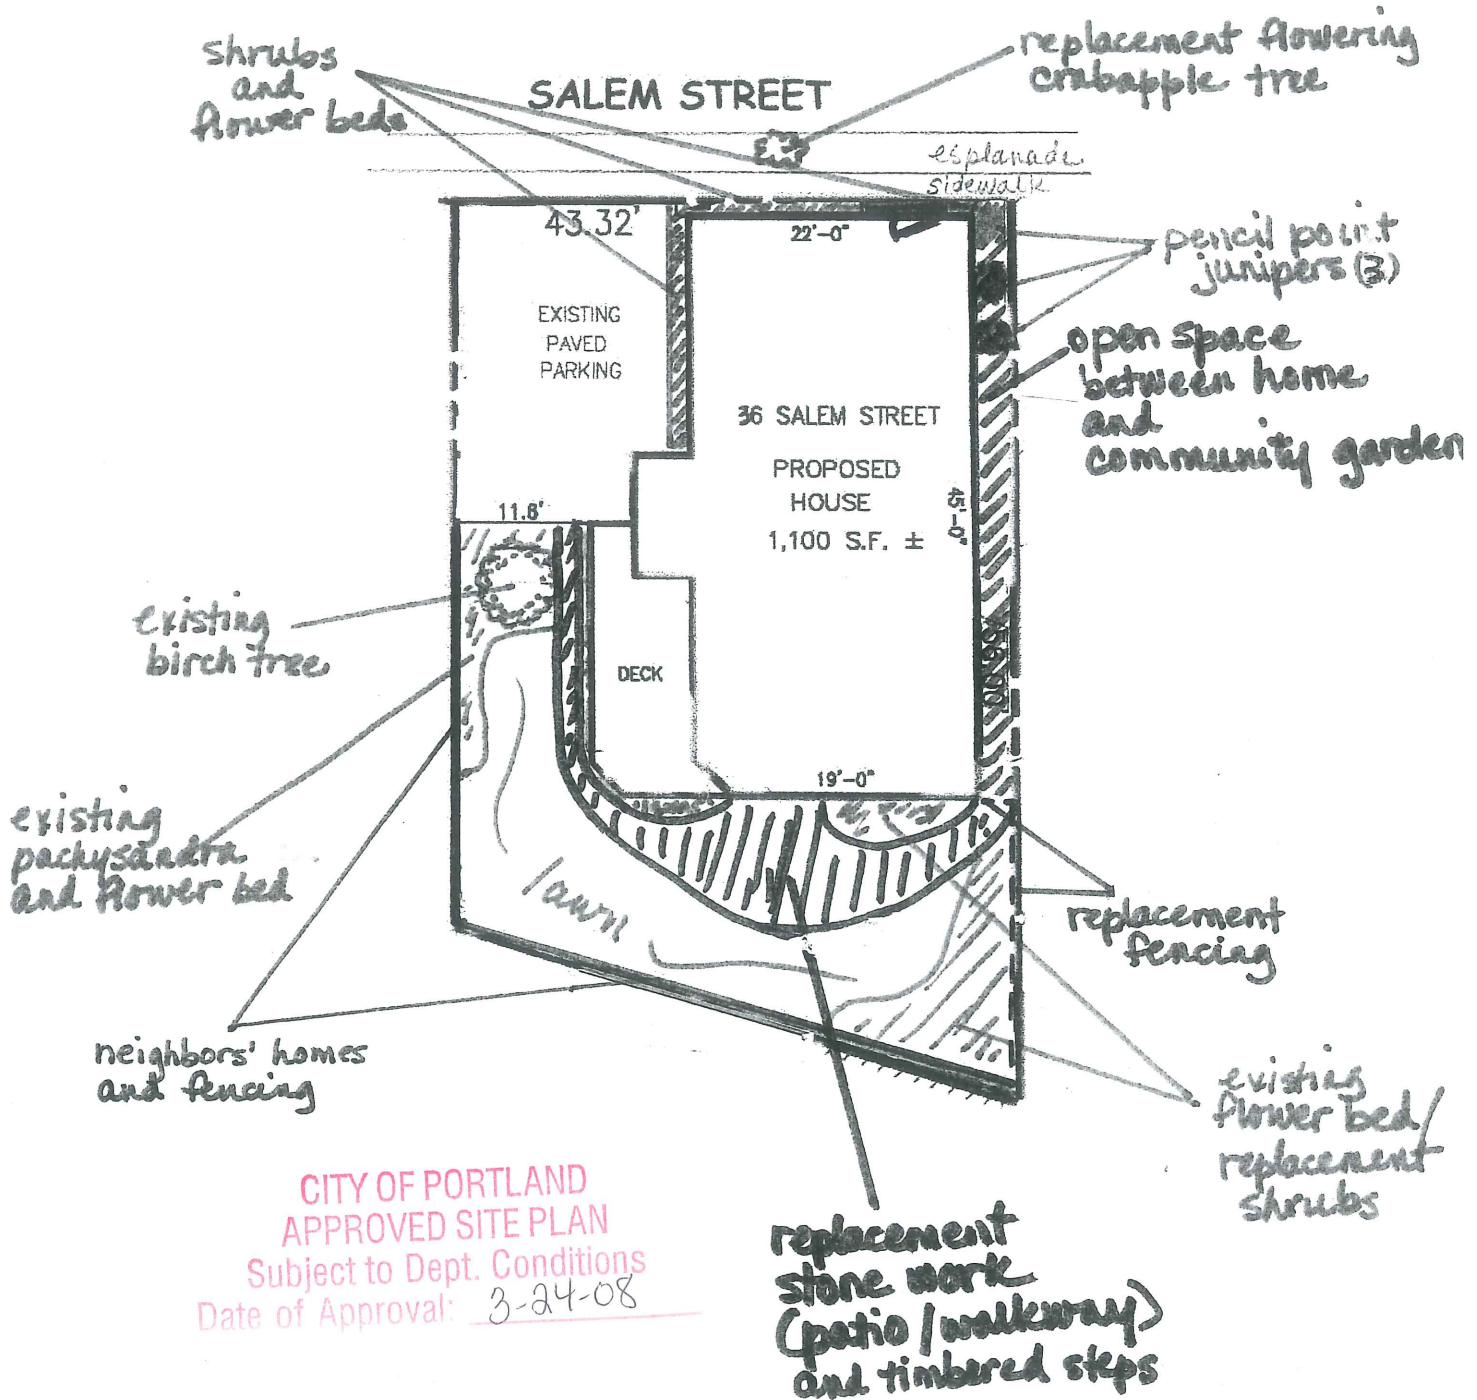 shrubs
and
flower beds
SALEM STREET
replacement flowering
crabapple tree
esplanade
sidewalk
43.32'
22'-0"
pencil point
junipers (3)
EXISTING
PAVED
PARKING
open space
between home
and
community garden
36 SALEM STREET
PROPOSED
HOUSE
1,100 S.F. ±
45'-0"
11.6'
existing
birch tree
DECK
19'-0"
existing
pachysandra
and flower bed
lawn
replacement
fencing
neighbors' homes
and fencing
existing
flower bed/
replacement
shrubs
CITY OF PORTLAND
APPROVED SITE PLAN
Subject to Dept. Conditions
Date of Approval: 3-24-08
replacement
stone work
(patio/walkway)
and timbered steps